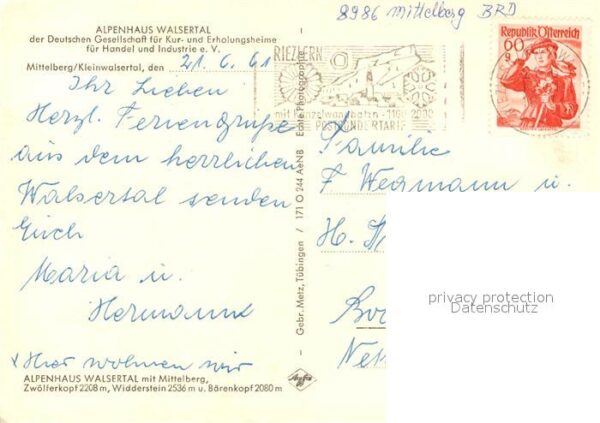 8986 Mittelberg BRD
ALPENHAUS WALSERTAL
der Deutschen Gesellschaft für Kur- und Erholungsheime
für Handel und Industrie e. V.
Mittelberg/Kleinwalsertal, den 21.6.61
RIEZLERN
POSTSONDERTARIF
Republik Österreich
60
Ihr Lieben
Herzl. Feriengrüße
aus dem herrlichen
Walsertal senden
Euch
Maria u.
Hermann
x Hier wohnen wir
ALPENHAUS WALSERTAL mit Mittelberg,
Zwölferkopf 2208 m, Widderstein 2536 m u. Bärenkopf 2080 m
Gebr. Metz, Tübingen / 171 O 244 AeNB Echte Photographie
Agfa
Familie
F. Wegmann u.
H.
privacy protection
Datenschutz